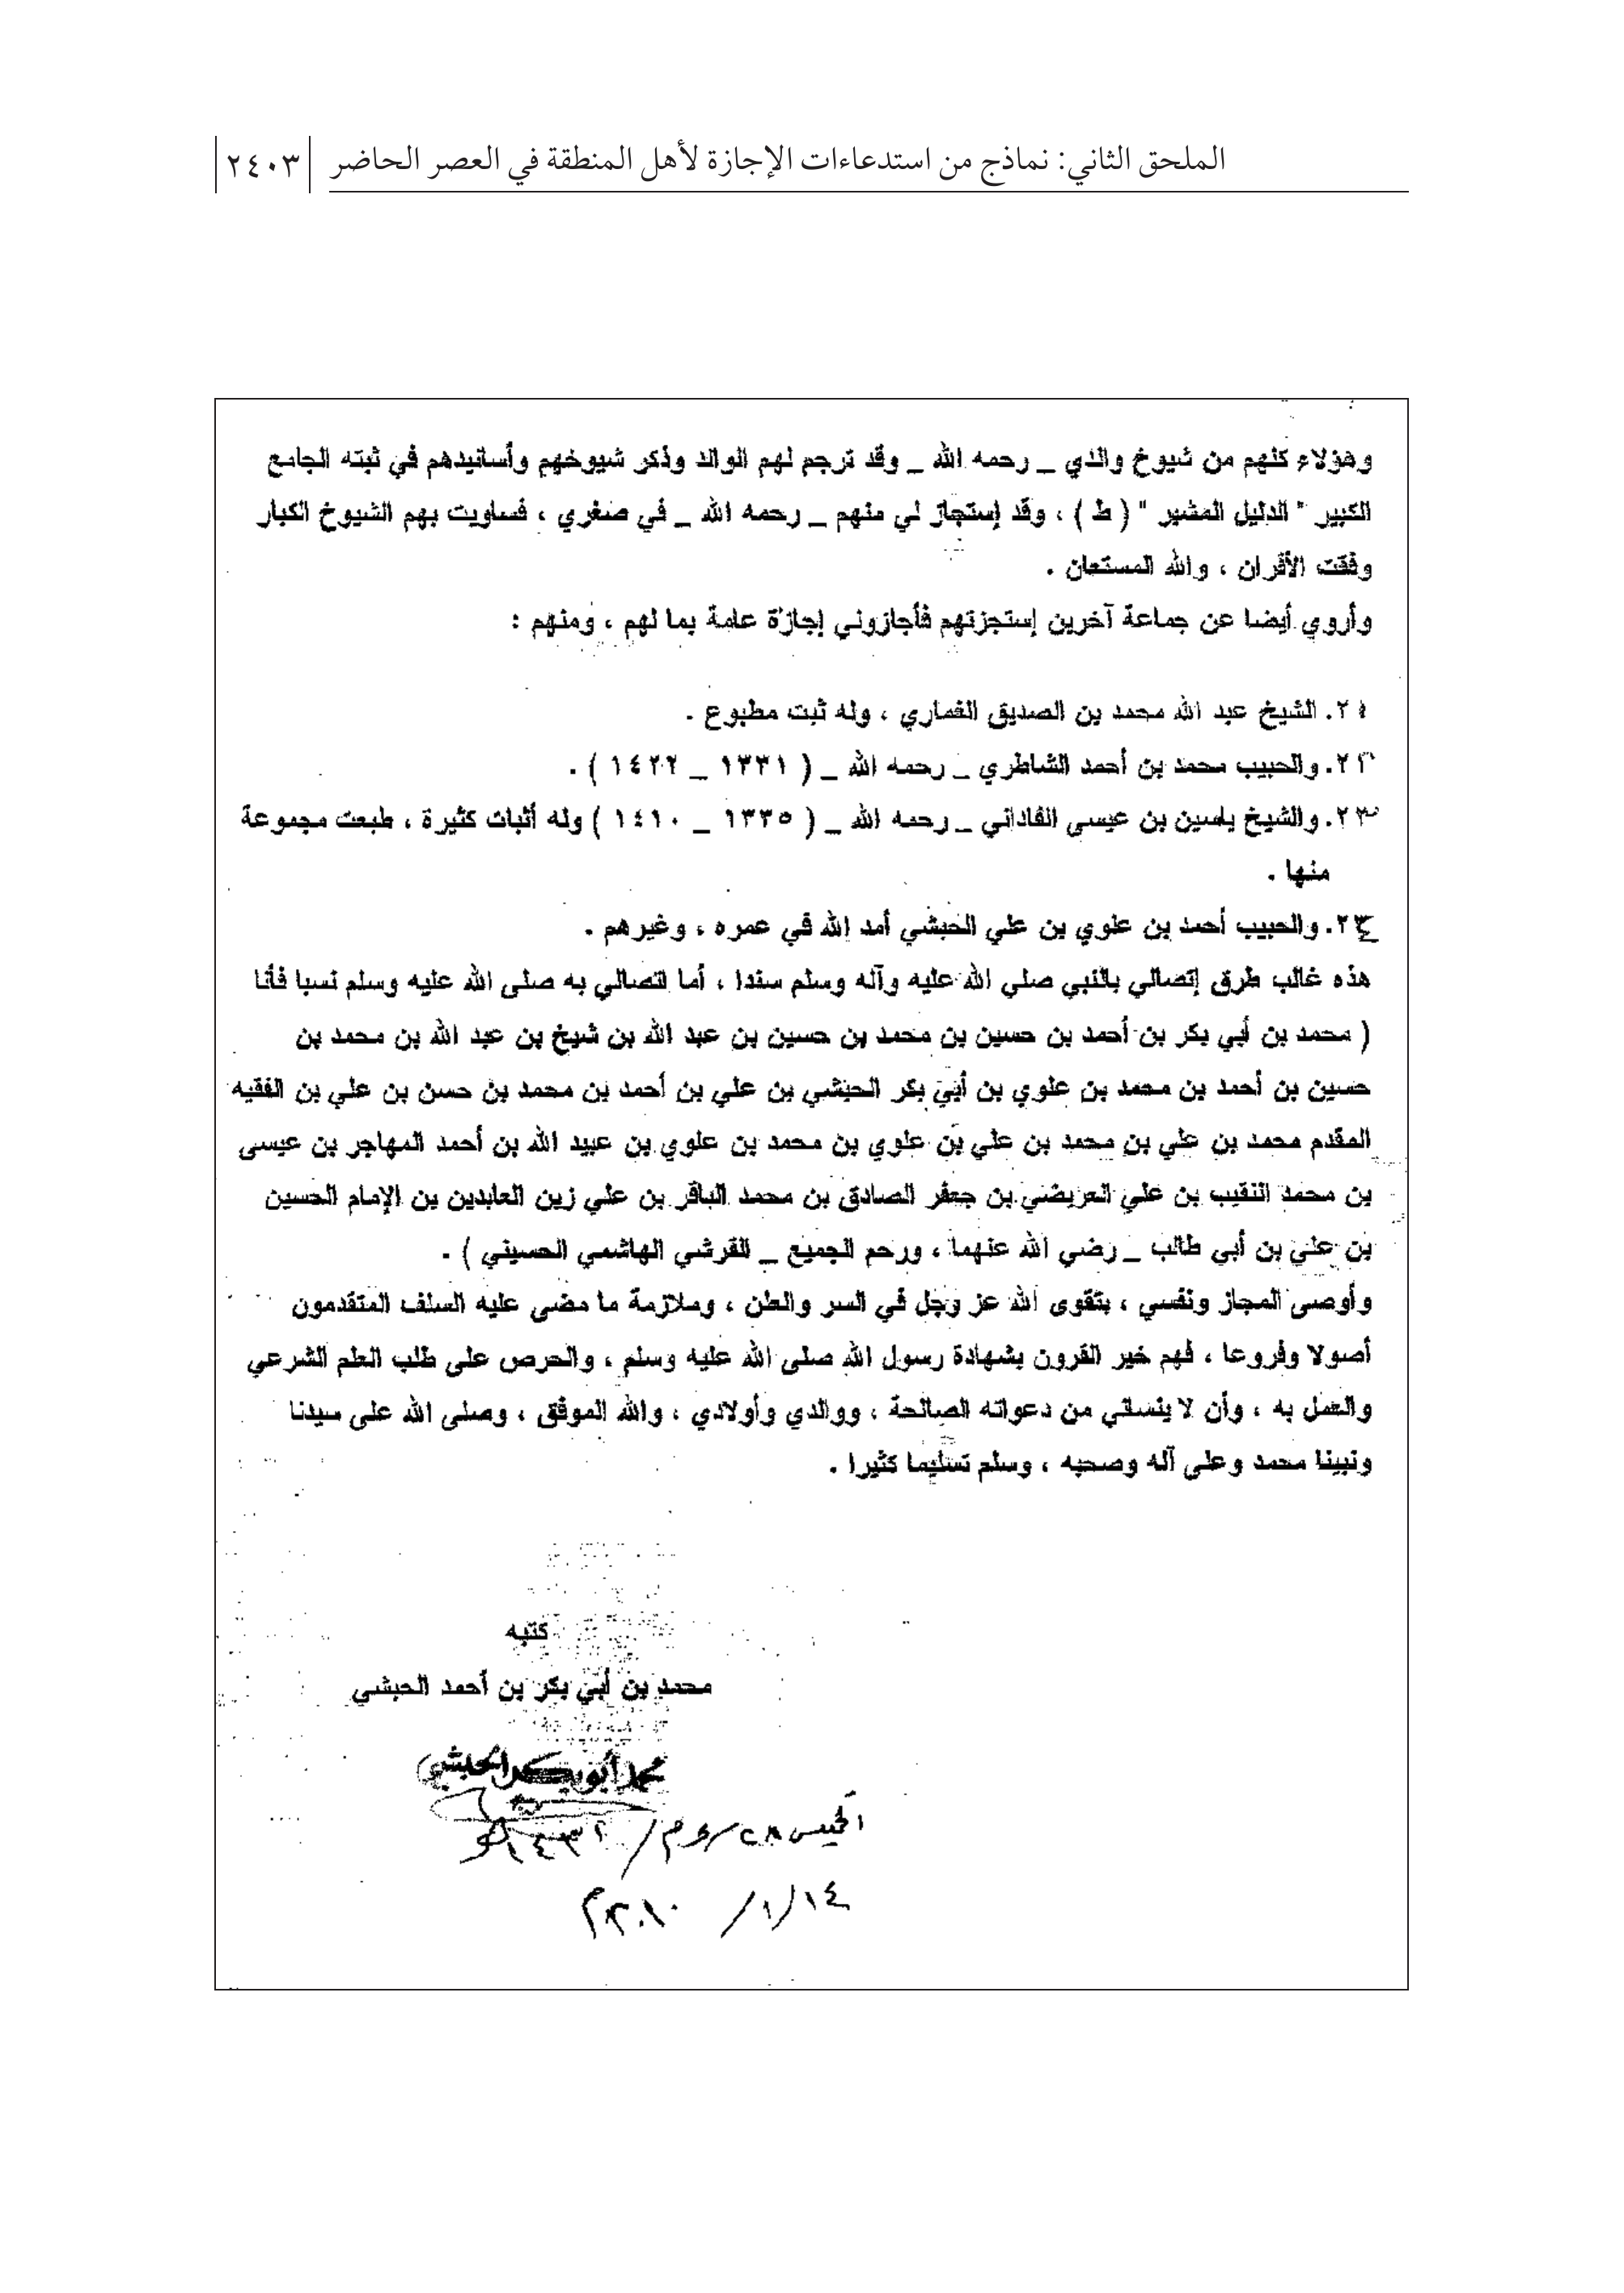 الملحق الثاني: نماذج من استدعاءات الإجازة لأهل المنطقة في العصر الحاضر ٢٤٠٣
وهؤلاء كلهم من شيوخ والدي _ رحمه الله _ وقد ترجم لهم الوالد وذكر شيوخهم وأسانيدهم في ثبته الجامع
الكبير " الدليل المشير " ( ط ) ، وقد إستجاز لي منهم _ رحمه الله _ في صغري ، فساويت بهم الشيوخ الكبار
وفقت الأقران ، والله المستعان .
وأروي أيضا عن جماعة آخرين إستجزتهم فأجازوني إجازة عامة بما لهم ، ومنهم :
٢١. الشيخ عبد الله محمد بن الصديق الغماري ، وله ثبت مطبوع .
٢٢. والحبيب محمد بن أحمد الشاطري _ رحمه الله _ ( ١٣٣١ _ ١٤٢٢ ) .
٢٣. والشيخ ياسين بن عيسى الفاداني _ رحمه الله _ ( ١٣٣٥ _ ١٤١٠ ) وله أثبات كثيرة ، طبعت مجموعة
منها .
٢٤. والحبيب أحمد بن علوي بن علي الحبشي أمد الله في عمره ، وغيرهم .
هذه غالب طرق إتصالي بالنبي صلي الله عليه وآله وسلم سندا ، أما اتصالي به صلى الله عليه وسلم نسبا فأنا
( محمد بن أبي بكر بن أحمد بن حسين بن محمد بن حسين بن عبد الله بن شيخ بن عبد الله بن محمد بن
حسين بن أحمد بن محمد بن علوي بن أبي بكر الحبشي بن علي بن أحمد بن محمد بن حسن بن علي بن الفقيه
المقدم محمد بن علي بن محمد بن علي بن علوي بن محمد بن علوي بن عبيد الله بن أحمد المهاجر بن عيسى
بن محمد النقيب بن علي العريضي بن جعفر الصادق بن محمد الباقر بن علي زين العابدين بن الإمام الحسين
بن علي بن أبي طالب _ رضي الله عنهما ، ورحم الجميع _ القرشي الهاشمي الحسيني ) .
وأوصى المجاز ونفسي ، بتقوى الله عز وجل في السر والعلن ، وملازمة ما مضى عليه السلف المتقدمون
أصولا وفروعا ، فهم خير القرون بشهادة رسول الله صلى الله عليه وسلم ، والحرص على طلب العلم الشرعي
والعمل به ، وأن لا ينساني من دعواته الصالحة ، ووالدي وأولادي ، والله الموفق ، وصلى الله على سيدنا
ونبينا محمد وعلى آله وصحبه ، وسلم تسليما كثيرا .
كتبه
محمد بن أبي بكر بن أحمد الحبشي
محمد أبو بكر الحبشي
الخميس ٢٨/
١٤/١/٢٠١٠م